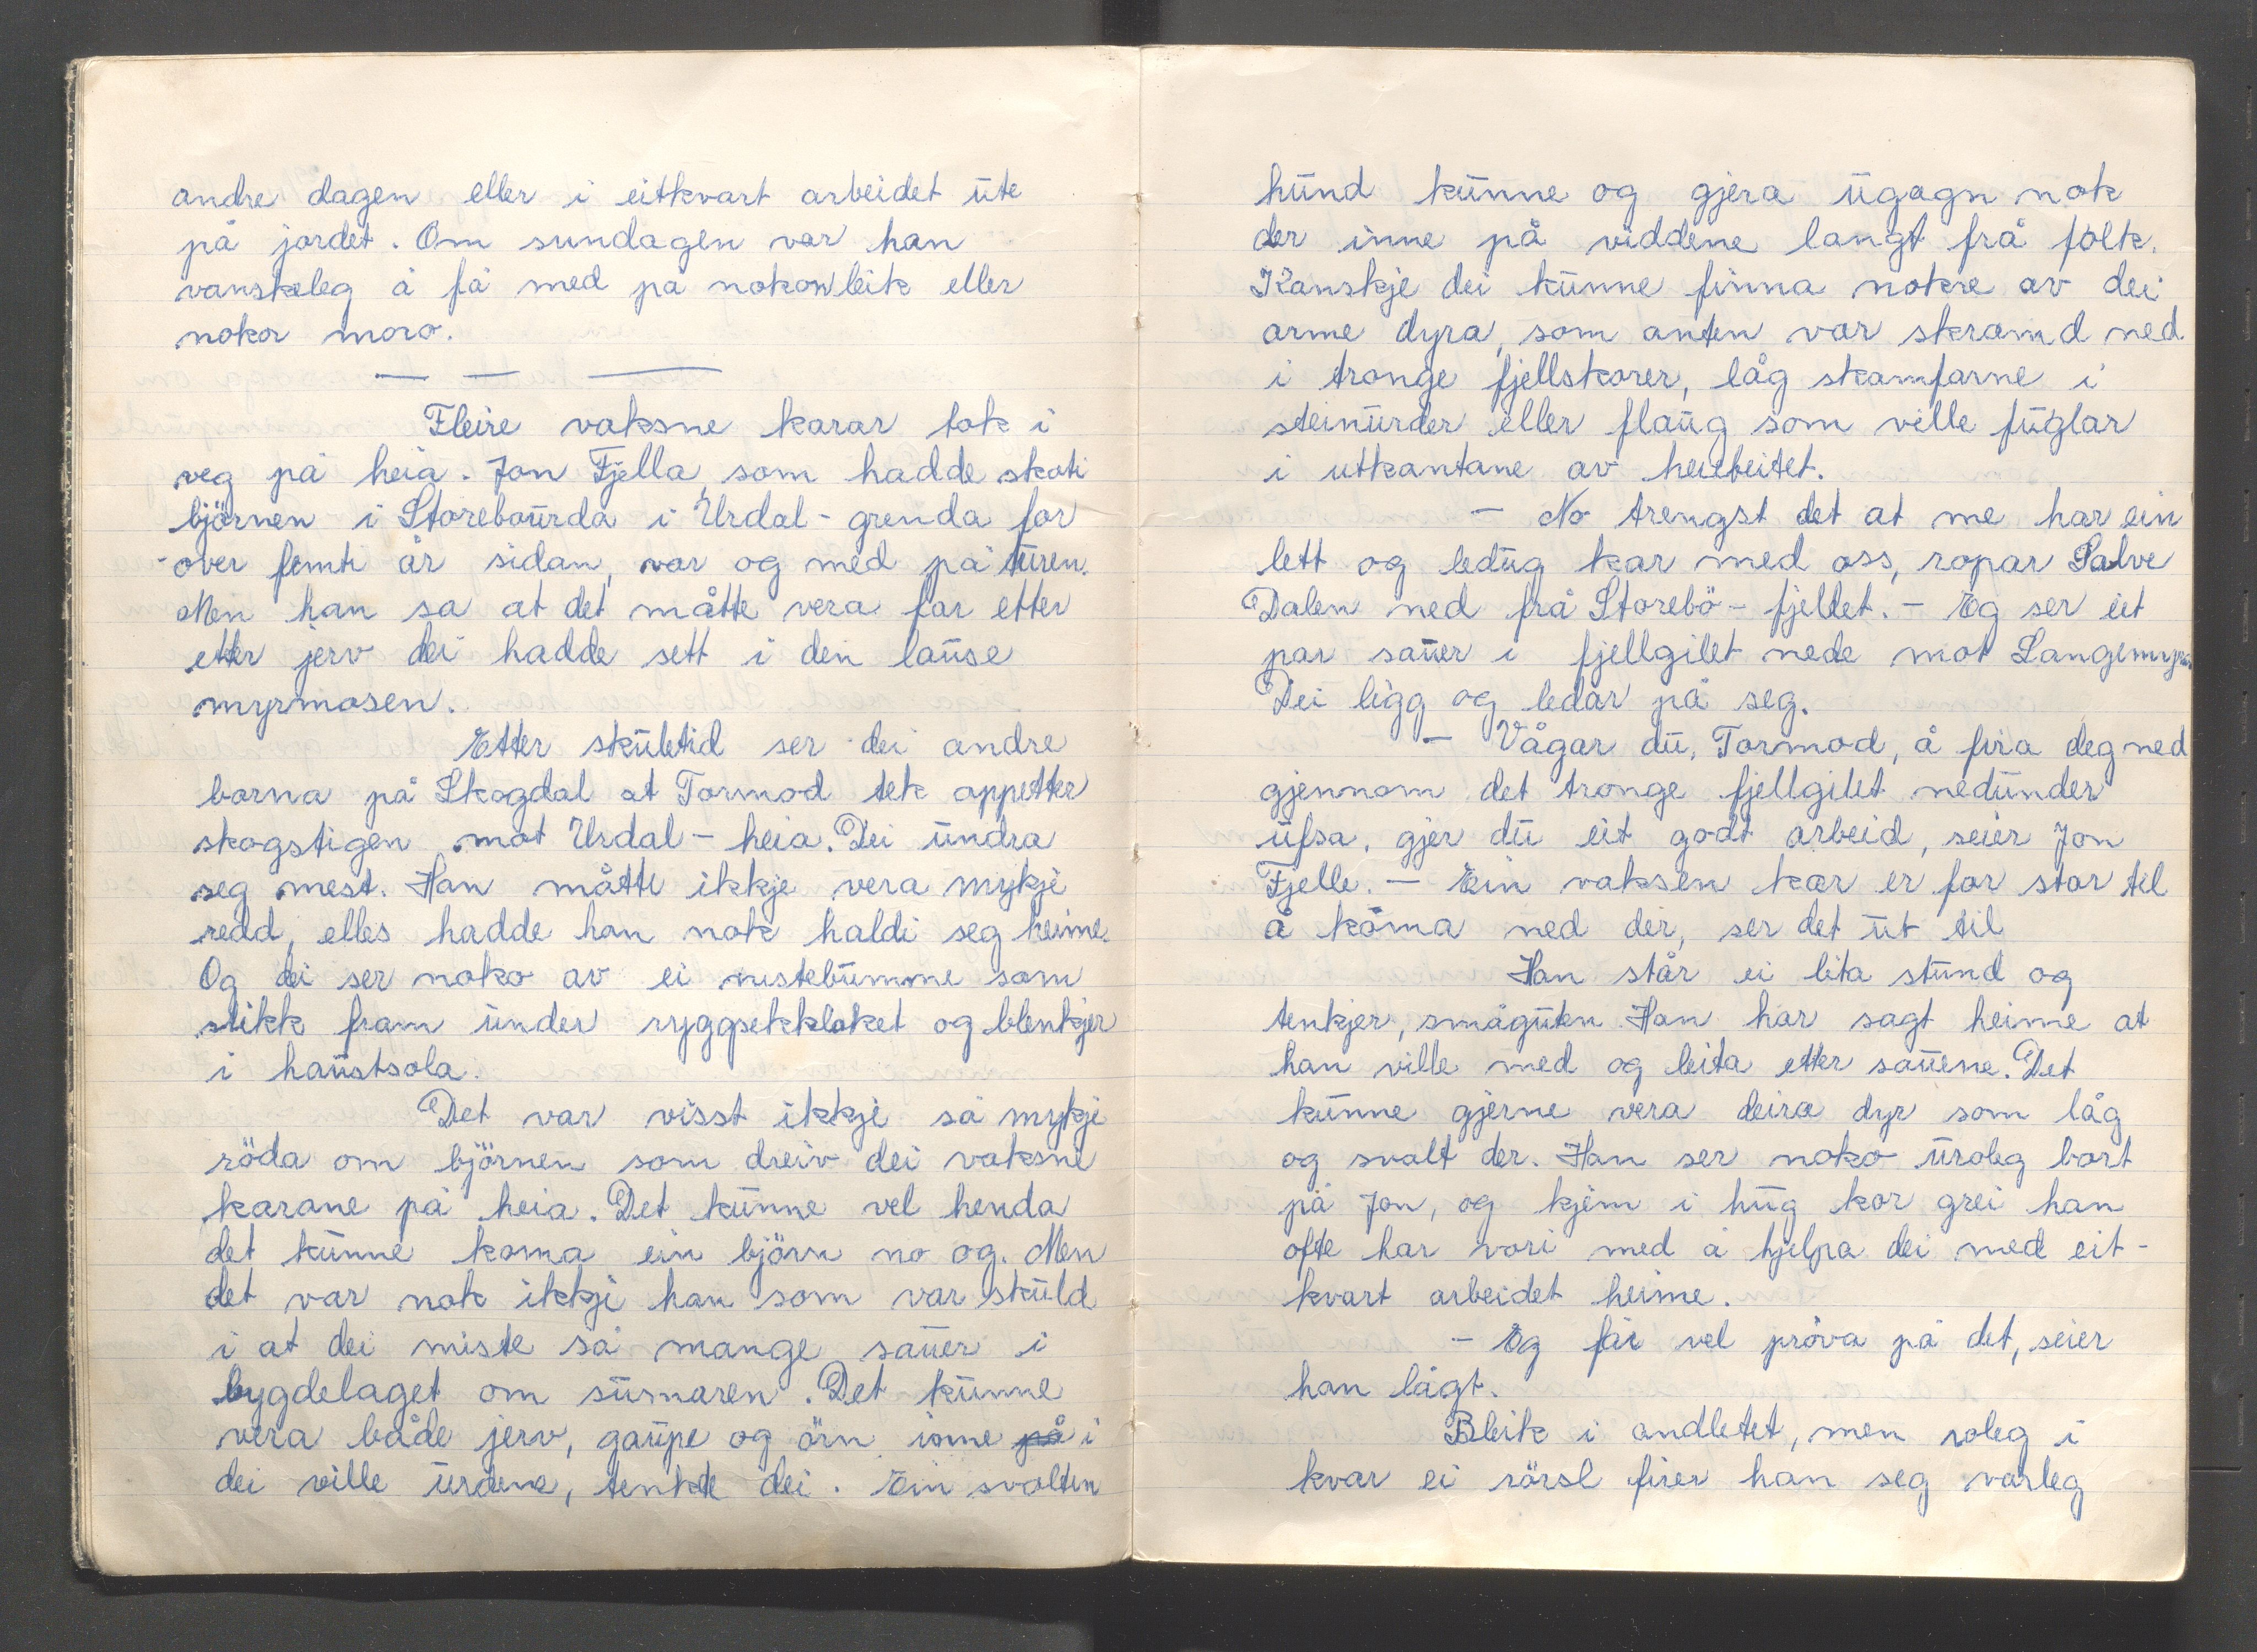 andre dagen eller i eitkvart arbeidet ute
på jordet. Om sundagen var han
vanskeleg å få med på nokon leik eller
nokor moro.
Fleire vaksne karar tok i
veg på heia. Jon Fjella, som hadde skoti
björnen i Storebourda i Urdal-grenda for
over femti år sidan, var og med på turen.
Men han sa at det måtte vera far etter
etter jerv dei hadde sett i den lause
myrmosen.
Etter skuletid ser dei andre
borna på Skogdal at Tormod tek oppetter
skogstigen mot Urdal-heia. Dei undra
seg mest. Han måtte ikkje vera mykje
redd, elles hadde han nok haldi seg heime.
Og dei ser noko av ei nistebumme som
stikk fram under ryggsekkloket og blenkjer
i haustsola.
Det var visst ikkje så mykje
röda om björnen som dreiv dei vaksne
karane på heia. Det kunne vel henda
det kunne koma ein björn no og. Men
det var nok ikkje han som var skuld
i at dei miste så mange sauer i
bygdelaget om sumaren. Det kunne
vera både jerv, gaupe og örn inne på i
dei ville urdene, tenkte dei. Ein svolten
hund kunne og gjera ugagn nok
der inne på viddene langt frå folk.
Kanskje dei kunne finna nokre av dei
arme dyra, som anten var skramd ned
i tronge fjellskorer, låg skamfarne i
steinurder eller flaug som ville fuglar
i utkantane av heiebeitet.
- No trengst det at me har ein
lett og ledug kar med oss, ropar Salve
Dalen ned frå Storebö-fjellet. - Eg ser eit
par sauer i fjellgilet nede mot Langemyra
Dei ligg og ledar på seg.
- Vågar du, Tormod, å fira deg ned
gjennom det tronge fjellgilet nedunder
ufsa, gjer du eit godt arbeid, seier Jon
Fjelle. - Ein vaksen kar er for stor til
å koma ned der, ser det ut til
Han står ei lita stund og
tenkjer, småguten. Han har sagt heime at
han ville med og leita etter sauene. Det
kunne gjerne vera deira dyr som låg
og svalt der. Han ser noko uroleg bort
på Jon, og kjem i hug kor grei han
ofte har vori med å hjelpa dei med eit-
kvart arbeidet heime.
- Eg får vel pröva på det, seier
han lågt.
Bleik i andletet, men roleg i
kvar ei rörsl firer han seg varleg